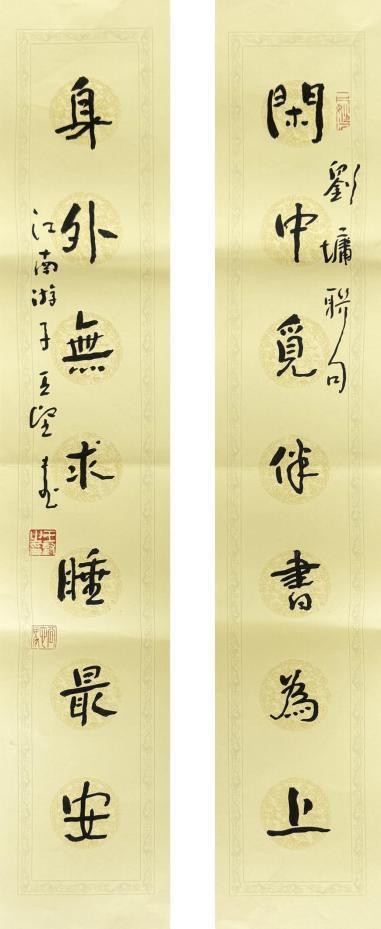 閑中覓伴書為上
劉墉聯句
身外無求睡最安
江南游子